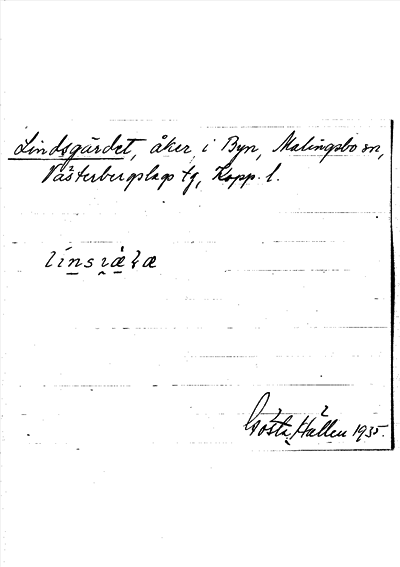 Lindsgärdet, åker, i Byn, Malingsbo sn,
Västerbergslags tg, Kopp. l.
Gösta Hallen 1935.